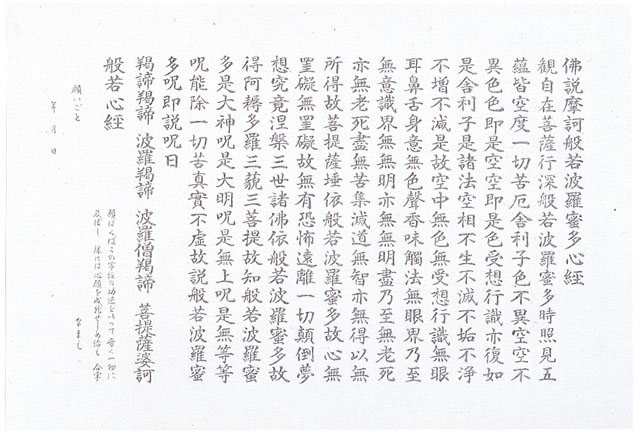 佛説摩訶般若波羅蜜多心經
観自在菩薩行深般若波羅蜜多時照見五
蘊皆空度一切苦厄舎利子色不異空空不
異色色即是空空即是色受想行識亦復如
是舎利子是諸法空相不生不滅不垢不淨
不增不減是故空中無色無受想行識無眼
耳鼻舌身意無色聲香味觸法無眼界乃至
無意識界無無明亦無無明盡乃至無老死
亦無老死盡無苦集滅道無智亦無得以無
所得故菩提薩埵依般若波羅蜜多故心無
罣礙無罣礙故無有恐怖遠離一切顛倒夢
想究竟涅槃三世諸佛依般若波羅蜜多故
得阿耨多羅三藐三菩提故知般若波羅蜜
多是大神呪是大明呪是無上呪是無等等
呪能除一切苦真實不虚故説般若波羅蜜
多呪即説呪曰
羯諦羯諦 波羅羯諦 波羅僧羯諦 菩提薩婆訶
般若心經
願いごと
年 月 日
願はくばこの写経の功徳をもって普く一切に
及ぼし
合掌